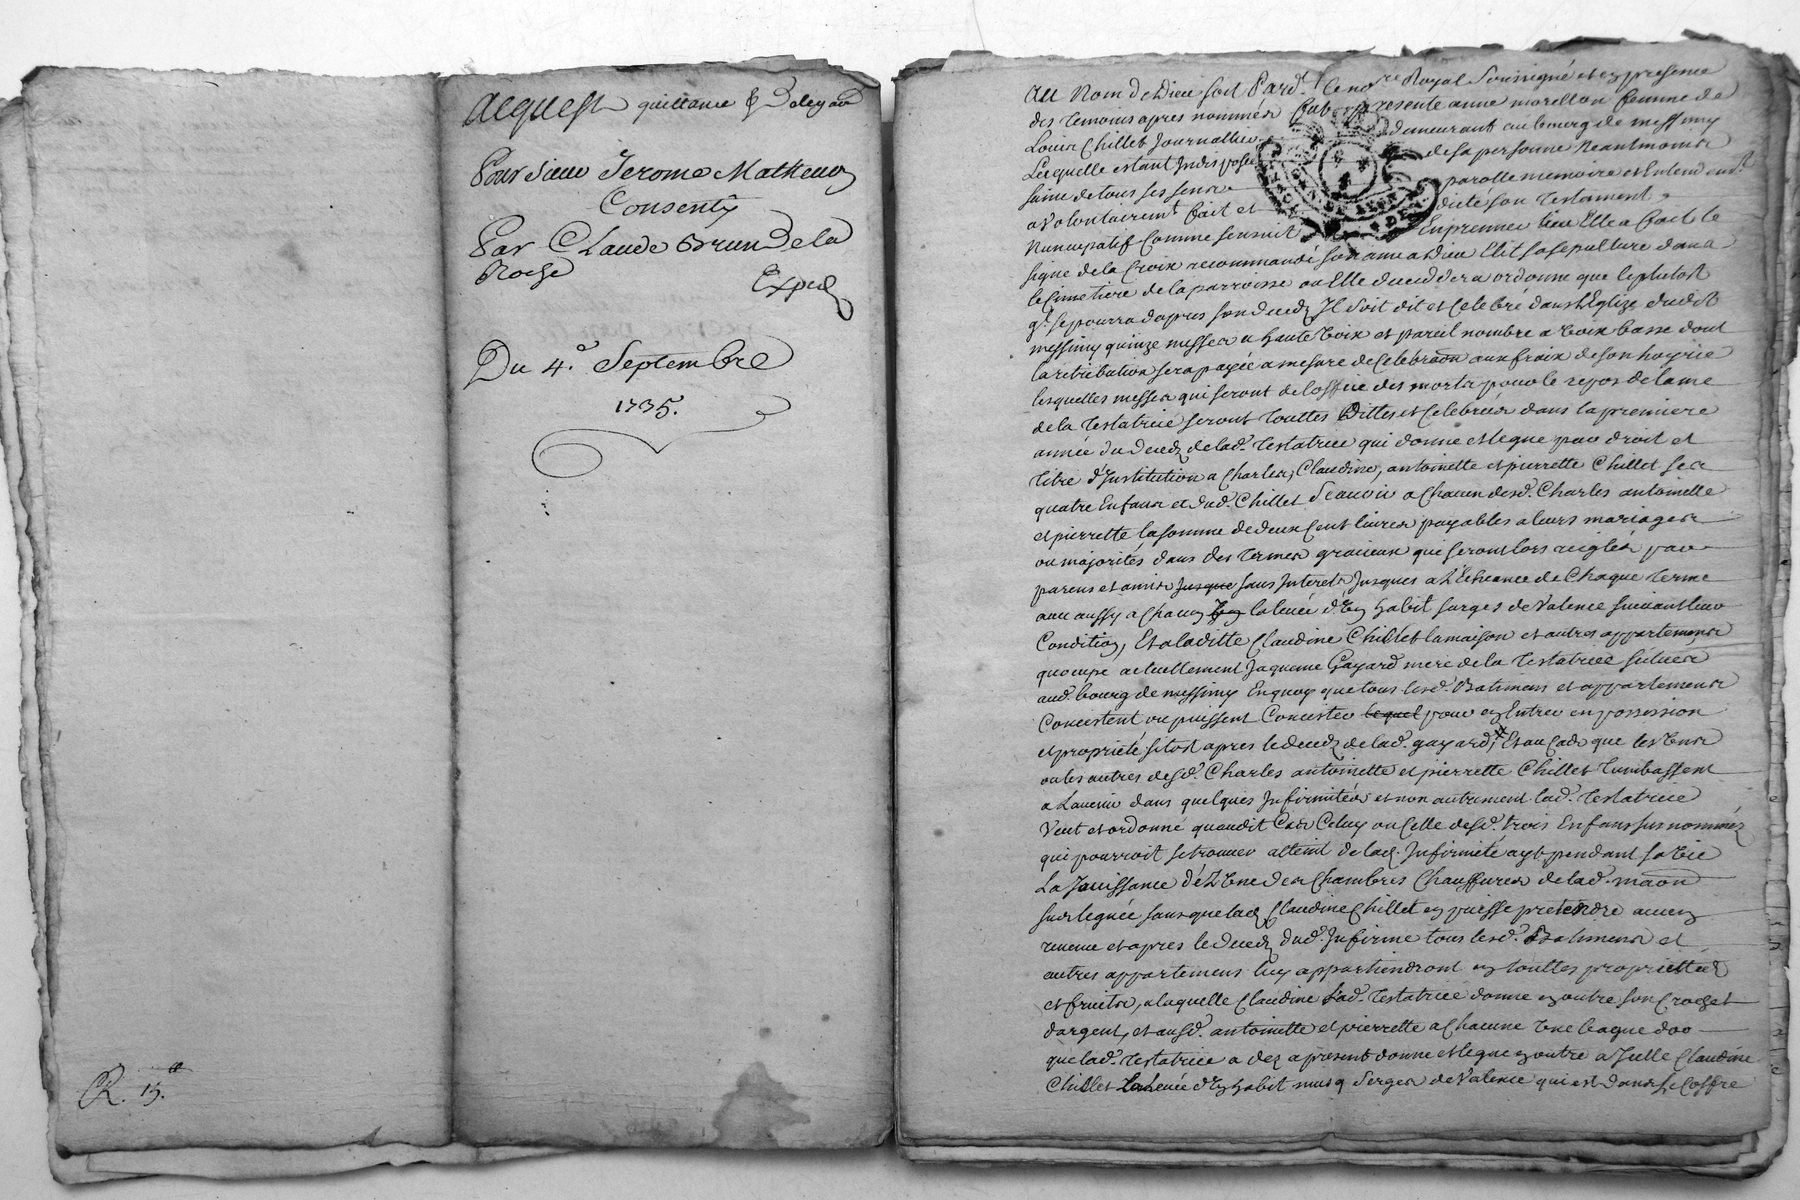 Acquest quittance &
Pour sieur Jerome Matheuoz
Consenty
Par Claude Brun Dela
Roche
Exped
Du 4.e Septembre
1735.
R. 15.
Au Nom de Dieu soit Pard.t le no.re Royal soussigné et en presence
des temoins apres nommés fut presente anne morellon femme de
Louis Chillet Journallier demeurant au bourg de messimy
Lecquelle estant Indisposée de sa personne Neantmoins
saine de tous ses sens parolle memoire et Entendem.t
a volontairem.t fait et dicté son Testament
Nuncupatif Comme sensuit Enpremier lieu Elle a fait le
signe de la Croix recommandé son ame a Dieu Elit sa sepulture dans
le Cimetiere de la parroisse ou Elle deceddera ordonne que le plutost
q.l se pourra dapres son decedz Il soit dit et Celebré dans l'Eglize dudit
messimy quinze messes a haute voix et pareil nombre a voix basse dont
la retribution sera payée a mesure de Celebraon aux fraix de son hoyrie
lesquelles messes qui seront de loffice des morts pour le repos de lame
de la Testatrice seront touttes Dittes et Celebrées dans la premiere
année du decedz de lad. Testatrice qui donne et legue par droit et
titre d'Institution a Charles, Claudine, antoinette et pierrette Chillet ses
quatre Enfans et dud. Chillet Scauoir a Chacun desd. Charles antoinette
et pierrette la somme de deux Cent livres payables a leurs mariages
ou majorités dans des termes gracieux qui seront lors reiglés par
parens et amis jusque sans Interets Jusques a L'Echeance de Chaque terme
auec aussy a Chacun la leuée d'Un habit sarges de Valence suiuant leur
Condition, Et a laditte Claudine Chillet la maison et autres appartemens
quocupe actuellement Jaqueme Gayard mere de la testatrice situées
aud. bourg de messimy Enquoy que tous lesd. Batimens et appartemens
Concistent ou puissent Concister lequel pour en Entrer en possession
et proprieté sitost apres le decedz de lad. gayard, Et au Cas que les Uns
ou les autres desd. Charles antoinette et pierrette Chillet tumbassent
a Lauenir dans quelques Infirmités et non autrement lad. Testatrice
Veut et ordonne quaudit Cas Celuy ou Celle desd. trois Enfans sus nommez
qui pourroit se trouuer atteint de lad. Infirmité ayt pendant sa Vie
La Jouissance de L'Une des Chambres Chauffures de lad. maon
sus leguée sans que lad. Claudine Chillet en puisse pretendre aucun
reuenu et apres le decedz dud. Infirme tous lesd. Batimens et
autres appartemens luy appartiendront en touttes proprietéz
et fruits, a laquelle Claudine Lad. Testatrice donne en outre son Crochet
dargent, et ausd. antoinette et pierrette a Chacune Une bague dor
que lad. Testatrice a dez apresent donne et legue en outre a Icelle Claudine
Chillet La Leuée d'Un habit musq Serges de Valence qui est dans le Coffre